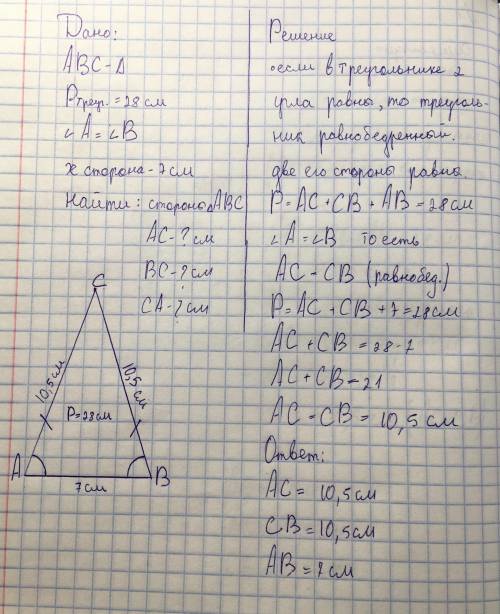 Дано:
ABC - Δ
Pтреуг. = 28 см
∠A = ∠B
x сторона - 7 см
Найти: стороны ΔABC
AC - ? см
BC - ? см
CA - ? см
C
10,5 см
10,5 см
P=28см
A
B
7 см
Решение
если в треугольнике 2
угла равны, то треуголь-
ник равнобедренный.
две его стороны равны.
P = AC + CB + AB = 28 см
∠A = ∠B то есть
AC = CB (равнобед.)
P = AC + CB + 7 = 28 см
AC + CB = 28 - 7
AC + CB = 21
AC = CB = 10,5 см
Ответ:
AC = 10,5 см
CB = 10,5 см
AB = 7 см